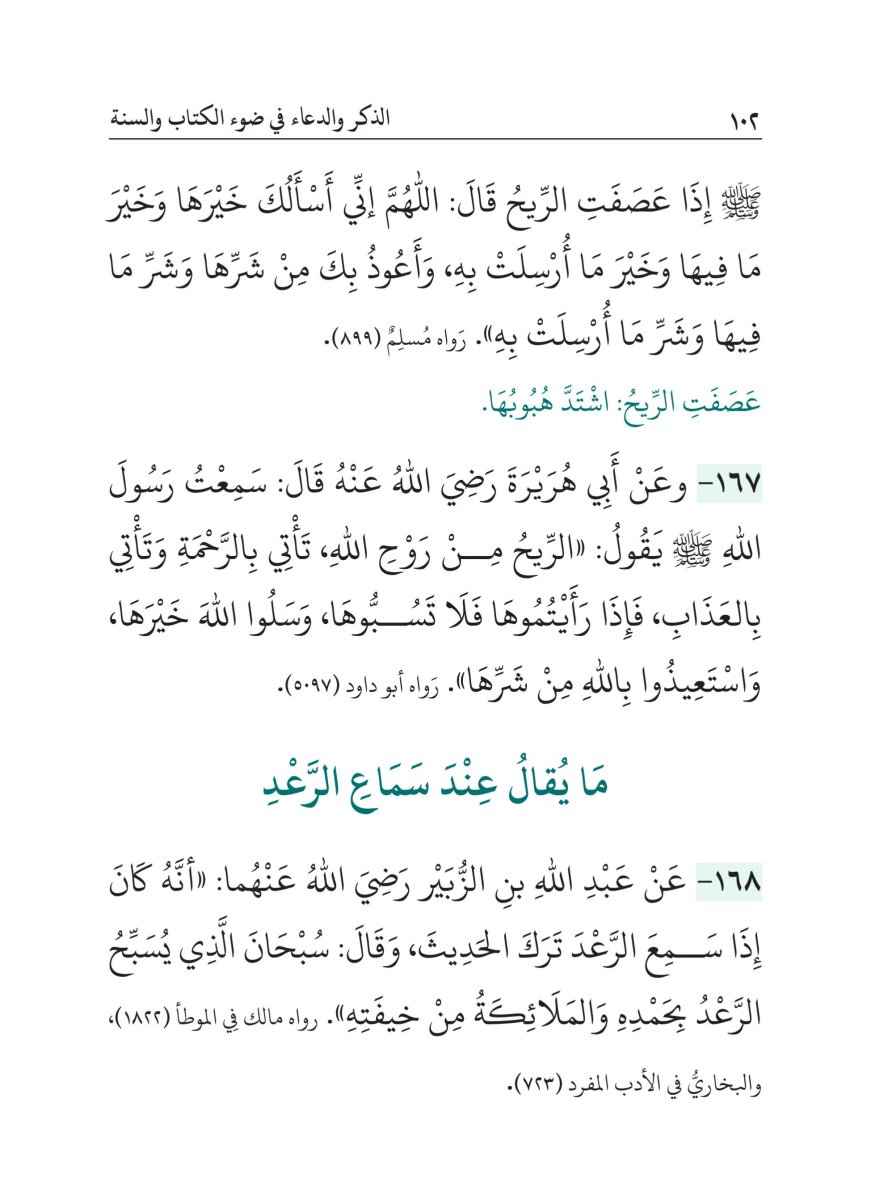 ١٠٢ الذكر والدعاء في ضوء الكتاب والسنة
ﷺ إِذَا عَصَفَتِ الرِّيحُ قَالَ: اللَّهُمَّ إنِّي أَسْأَلُكَ خَيْرَهَا وَخَيْرَ
مَا فِيهَا وَخَيْرَ مَا أُرْسِلَتْ بِهِ، وَأَعُوذُ بِكَ مِنْ شَرِّهَا وَشَرِّ مَا
فِيهَا وَشَرِّ مَا أُرْسِلَتْ بِهِ». رَواه مُسلِمٌ (٨٩٩).
عَصَفَتِ الرِّيحُ: اشْتَدَّ هُبُوبُهَا.
١٦٧- وعَنْ أَبِي هُرَيْرَةَ رَضِيَ اللهُ عَنْهُ قَالَ: سَمِعْتُ رَسُولَ
اللهِ ﷺ يَقُولُ: «الرِّيحُ مِـــنْ رَوْحِ اللهِ، تَأْتِي بِالرَّحْمَةِ وَتَأْتِي
بِالعَذَابِ، فَإِذَا رَأَيْتُمُوهَا فَلَا تَسُـــبُّوهَا، وَسَلُوا اللهَ خَيْرَهَا،
وَاسْتَعِيذُوا بِاللهِ مِنْ شَرِّهَا». رَواه أبو داود (٥٠٩٧).
مَا يُقالُ عِنْدَ سَمَاعِ الرَّعْدِ
١٦٨- عَنْ عَبْدِ اللهِ بنِ الزُّبَيْر رَضِيَ اللهُ عَنْهُما: «أنَّهُ كَانَ
إِذَا سَـــمِعَ الرَّعْدَ تَرَكَ الحَدِيثَ، وَقَالَ: سُبْحَانَ الَّذِي يُسَبِّحُ
الرَّعْدُ بِحَمْدِهِ وَالمَلَائِكَةُ مِنْ خِيفَتِهِ». رواه مالك فِي الموطأ (١٨٢٢)،
والبخاريُّ في الأدب المفرد (٧٢٣).